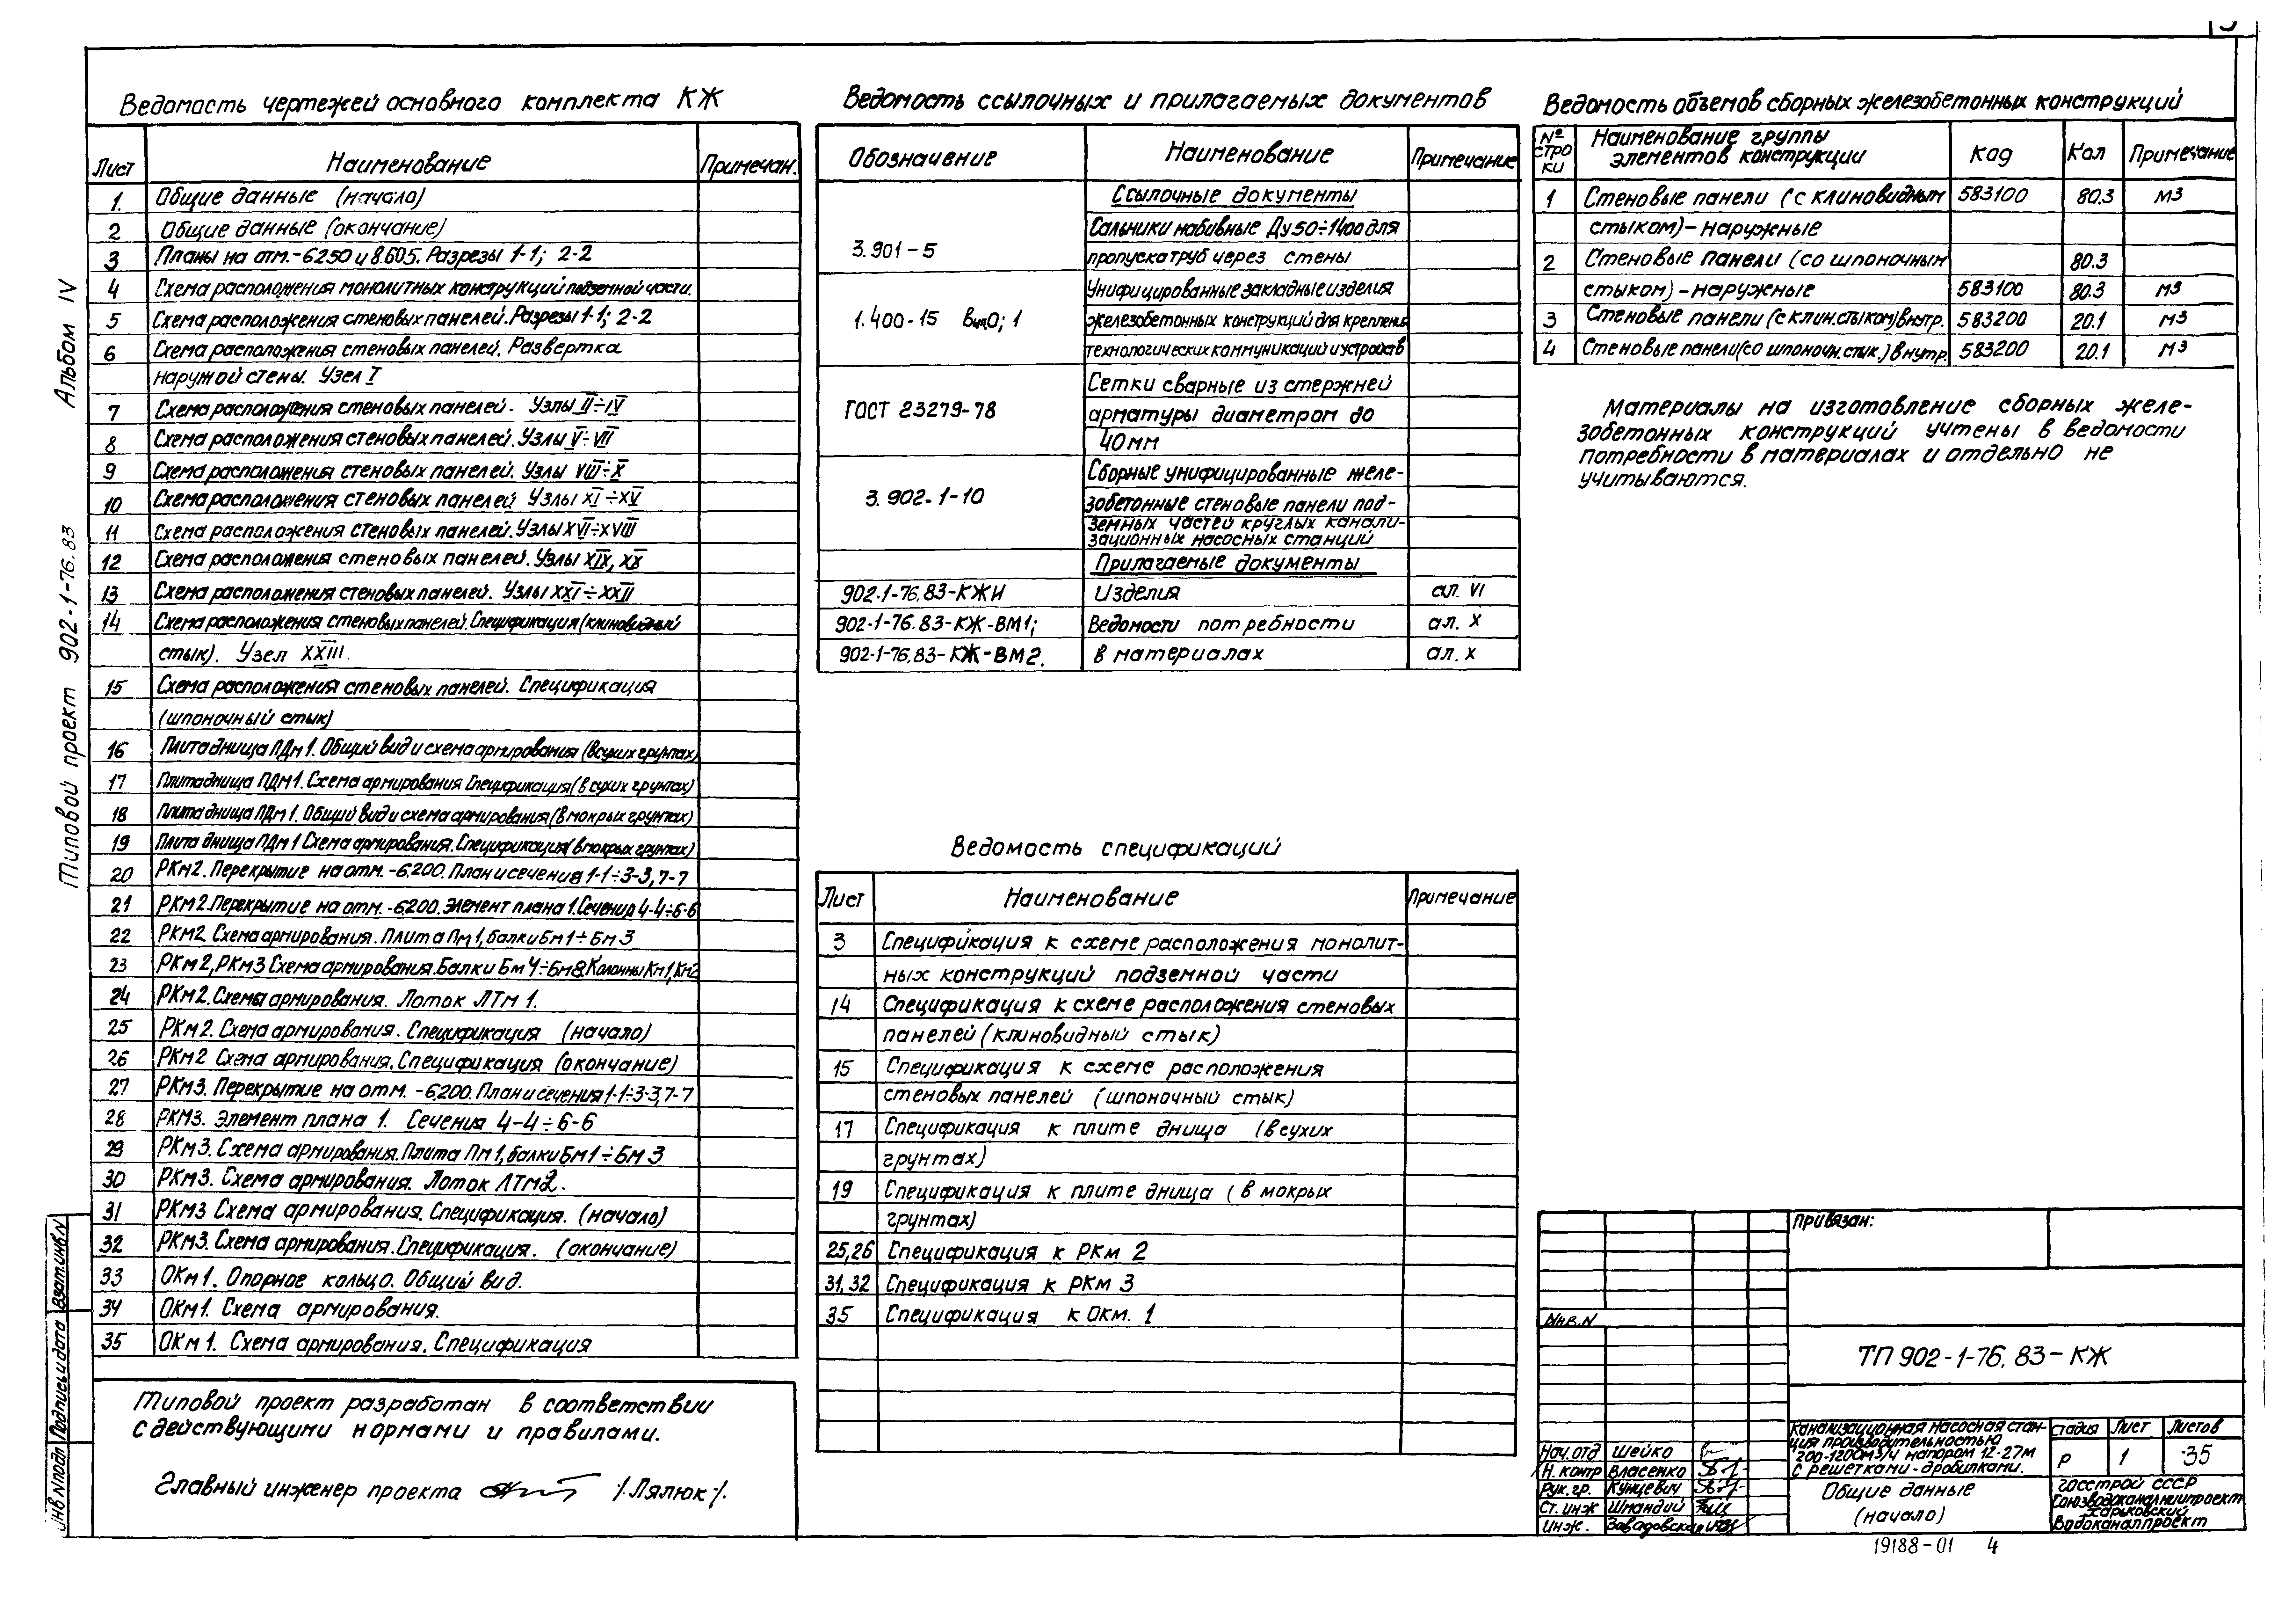 Альбом IV
Типовой проект 902-1-76.83
Ведомость чертежей основного комплекта КЖ
Лист Наименование Примечан.
1. Общие данные (начало)
2 Общие данные (окончание)
3 Планы на отм.-6250 и 8.605. Разрезы 1-1; 2-2
4 Схема расположения монолитных конструкций подземной части.
5 Схема расположения стеновых панелей. Разрезы 1-1; 2-2
6 Схема расположения стеновых панелей. Развертка
наружой стены. Узел I
7 Схема расположения стеновых панелей. Узлы II÷IV
8 Схема расположения стеновых панелей. Узлы V÷VII
9 Схема расположения стеновых панелей. Узлы VIII÷X
10 Схема расположения стеновых панелей Узлы XI÷XV
11 Схема расположения стеновых панелей. Узлы XVI÷XVIII
12 Схема расположения стеновых панелей. Узлы XIX, XX
13 Схема расположения стеновых панелей. Узлы XXI÷XXII
14 Схема расположения стеновых панелей. Спецификация (клиновидный
стык). Узел XXIII.
15 Схема расположения стеновых панелей. Спецификация
(шпоночный стык)
16 Плита днища ПДм1. Общий вид и схема армирования (в сухих грунтах)
17 Плита днища ПДм1. Схема армирования Спецификация (в сухих грунтах)
18 Плита днища ПДм1. Общий вид и схема армирования (в мокрых грунтах)
19 Плита днища ПДм1 Схема армирования. Спецификация (в мокрых грунтах)
20 РКм2. Перекрытие на отм. -6.200. План и сечения 1-1÷3-3, 7-7
21 РКм2. Перекрытие на отм. -6.200. Элемент плана 1. Сечения 4-4÷6-6
22 РКм2. Схема армирования. Плита Пм1, балки Бм1÷Бм3
23 РКм2, РКм3 Схема армирования. Балки Бм4÷Бм8. Колонны Км1, Км2
24 РКм2. Схема армирования. Лоток ЛТм 1.
25 РКм2. Схема армирования. Спецификация (начало)
26 РКм2 Схема армирования. Спецификация (окончание)
27 РКм3. Перекрытие на отм. -6,200. План и сечения 1-1÷3-3, 7-7
28 РКМ3. Элемент плана 1. Сечения 4-4÷6-6
29 РКм3. Схема армирования. Плита Пм1, балки Бм1÷Бм3
30 РКм3. Схема армирования. Лоток ЛТм2.
31 РКм3 Схема армирования. Спецификация. (начало)
32 РКм3. Схема армирования. Спецификация. (окончание)
33 ОКм1. Опорное кольцо. Общий вид.
34 ОКм1. Схема армирования.
35 ОКм1. Схема армирования. Спецификация
Типовой проект разработан в соответствии
с действующими нормами и правилами.
Главный инженер проекта /.Лялюк/.
Ведомость ссылочных и прилагаемых документов
Обозначение Наименование Примечание
Ссылочные документы
Сальники набивные Ду50÷1400 для
3.901-5 пропуска труб через стены
Унифицированные закладные изделия
1.400-15 Вып0; 1 железобетонных конструкций для крепления
технологических коммуникаций и устройств
Сетки сварные из стержней
ГОСТ 23279-78 арматуры диаметром до
40мм
Сборные унифицированные желе-
3.902-1-10 зобетонные стеновые панели под-
земных частей круглых канали-
зационных насосных станций
Прилагаемые документы
902-1-76.83-КЖИ Изделия ал. VI
902-1-76.83-КЖ-ВМ1; Ведомости потребности ал. X
902-1-76.83-КЖ-ВМ2. в материалах ал. X
Ведомость спецификаций
Лист Наименование Примечание
3 Спецификация к схеме расположения монолит-
ных конструкций подземной части
14 Спецификация к схеме расположения стеновых
панелей (клиновидный стык)
15 Спецификация к схеме расположения
стеновых панелей (шпоночный стык)
17 Спецификация к плите днища (в сухих
грунтах)
19 Спецификация к плите днища (в мокрых
грунтах)
25,26 Спецификация к РКм 2
31,32 Спецификация к РКм 3
35 Спецификация к ОКм. 1
Ведомость объемов сборных железобетонных конструкций
№ строки Наименование группы элементов конструкции Код Кол Примечание
1 Стеновые панели (с клиновидным 583100 80.3 м3
стыком)-наружные
2 Стеновые панели (со шпоночным 80.3
стыком)-наружные 583100 80.3 м3
3 Стеновые панели (с клин. стыком) внутр. 583200 20.1 м3
4 Стеновые панели (со шпоночн. стык.) внутр. 583200 20.1 м3
Материалы на изготовление сборных желе-
зобетонных конструкций учтены в ведомости
потребности в материалах и отдельно не
учитываются.
Привязан:
Инв.N
ТП 902-1-76.83-КЖ
Канализационная насосная стан-
ция производительностью
200-1200м3/ч напором 12-27м
с решетками-дробилками.
Стадия Лист Листов
р 1 35
Нач.отд Шейко
Н.контр Власенко
Рук.гр. Кунцевич
Ст.инж Шмандий
Инж. Завадовская
Общие данные
(начало)
Госстрой СССР
Союзводоканалниипроект
Харьковский
Водоканалпроект
Инв N подл Подпись и дата Взат.инв.N
19188-01 4